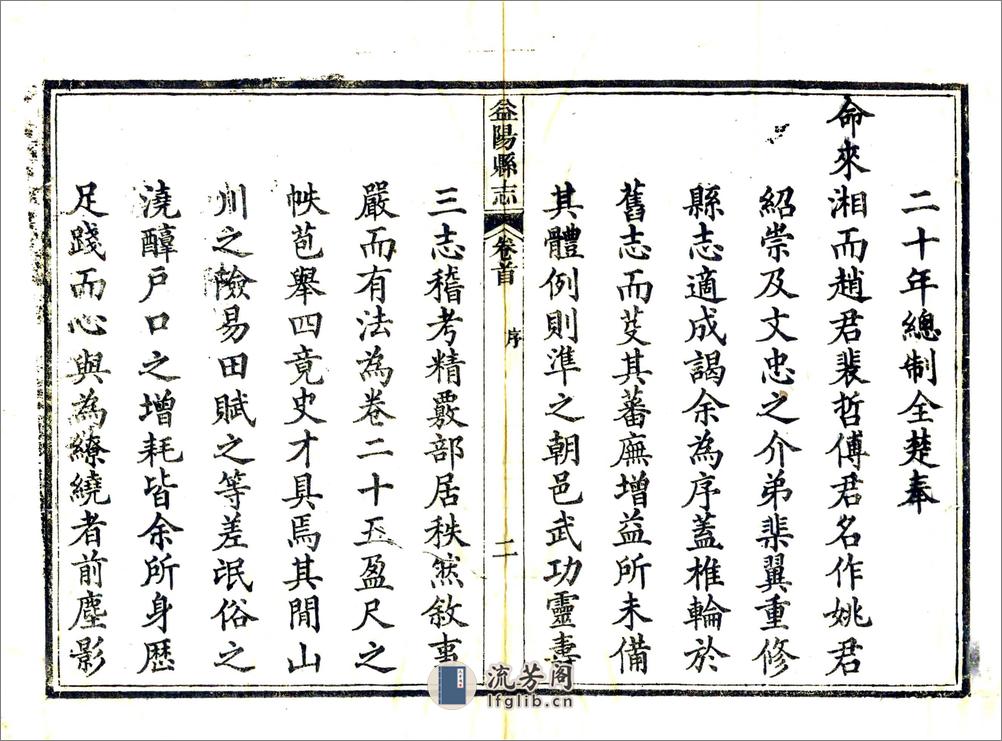 二十年總制全楚奉
命來湘而趙君裴哲傅君名作姚君
紹崇及文忠之介弟棐翼重修
縣志適成謁余為序蓋椎輪於
舊志而芟其蕃廡增益所未備
其體例則準之朝邑武功靈壽
益陽縣志
卷首
序
二
三志稽考精覈部居秩然敘事
嚴而有法為卷二十五盈尺之
帙苞舉四竟史才具焉其間山
川之險易田賦之等差氓俗之
澆醇戶口之增耗皆余所身歷
足踐而心與為繚繞者前塵影
流芳阁
lfglib.cn